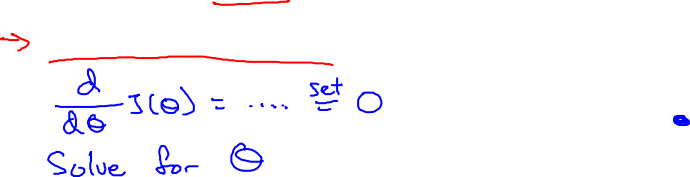 d/dθ J(θ) = .... set = 0
Solve for θ